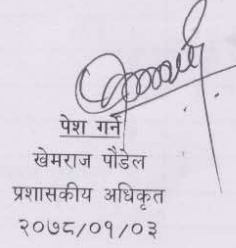 पेश गर्ने
खेमराज पौडेल
प्रशासकीय अधिकृत
२०७८/०१/०३